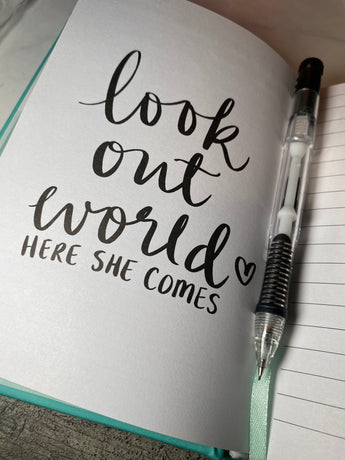 look
out
world
HERE SHE COMES